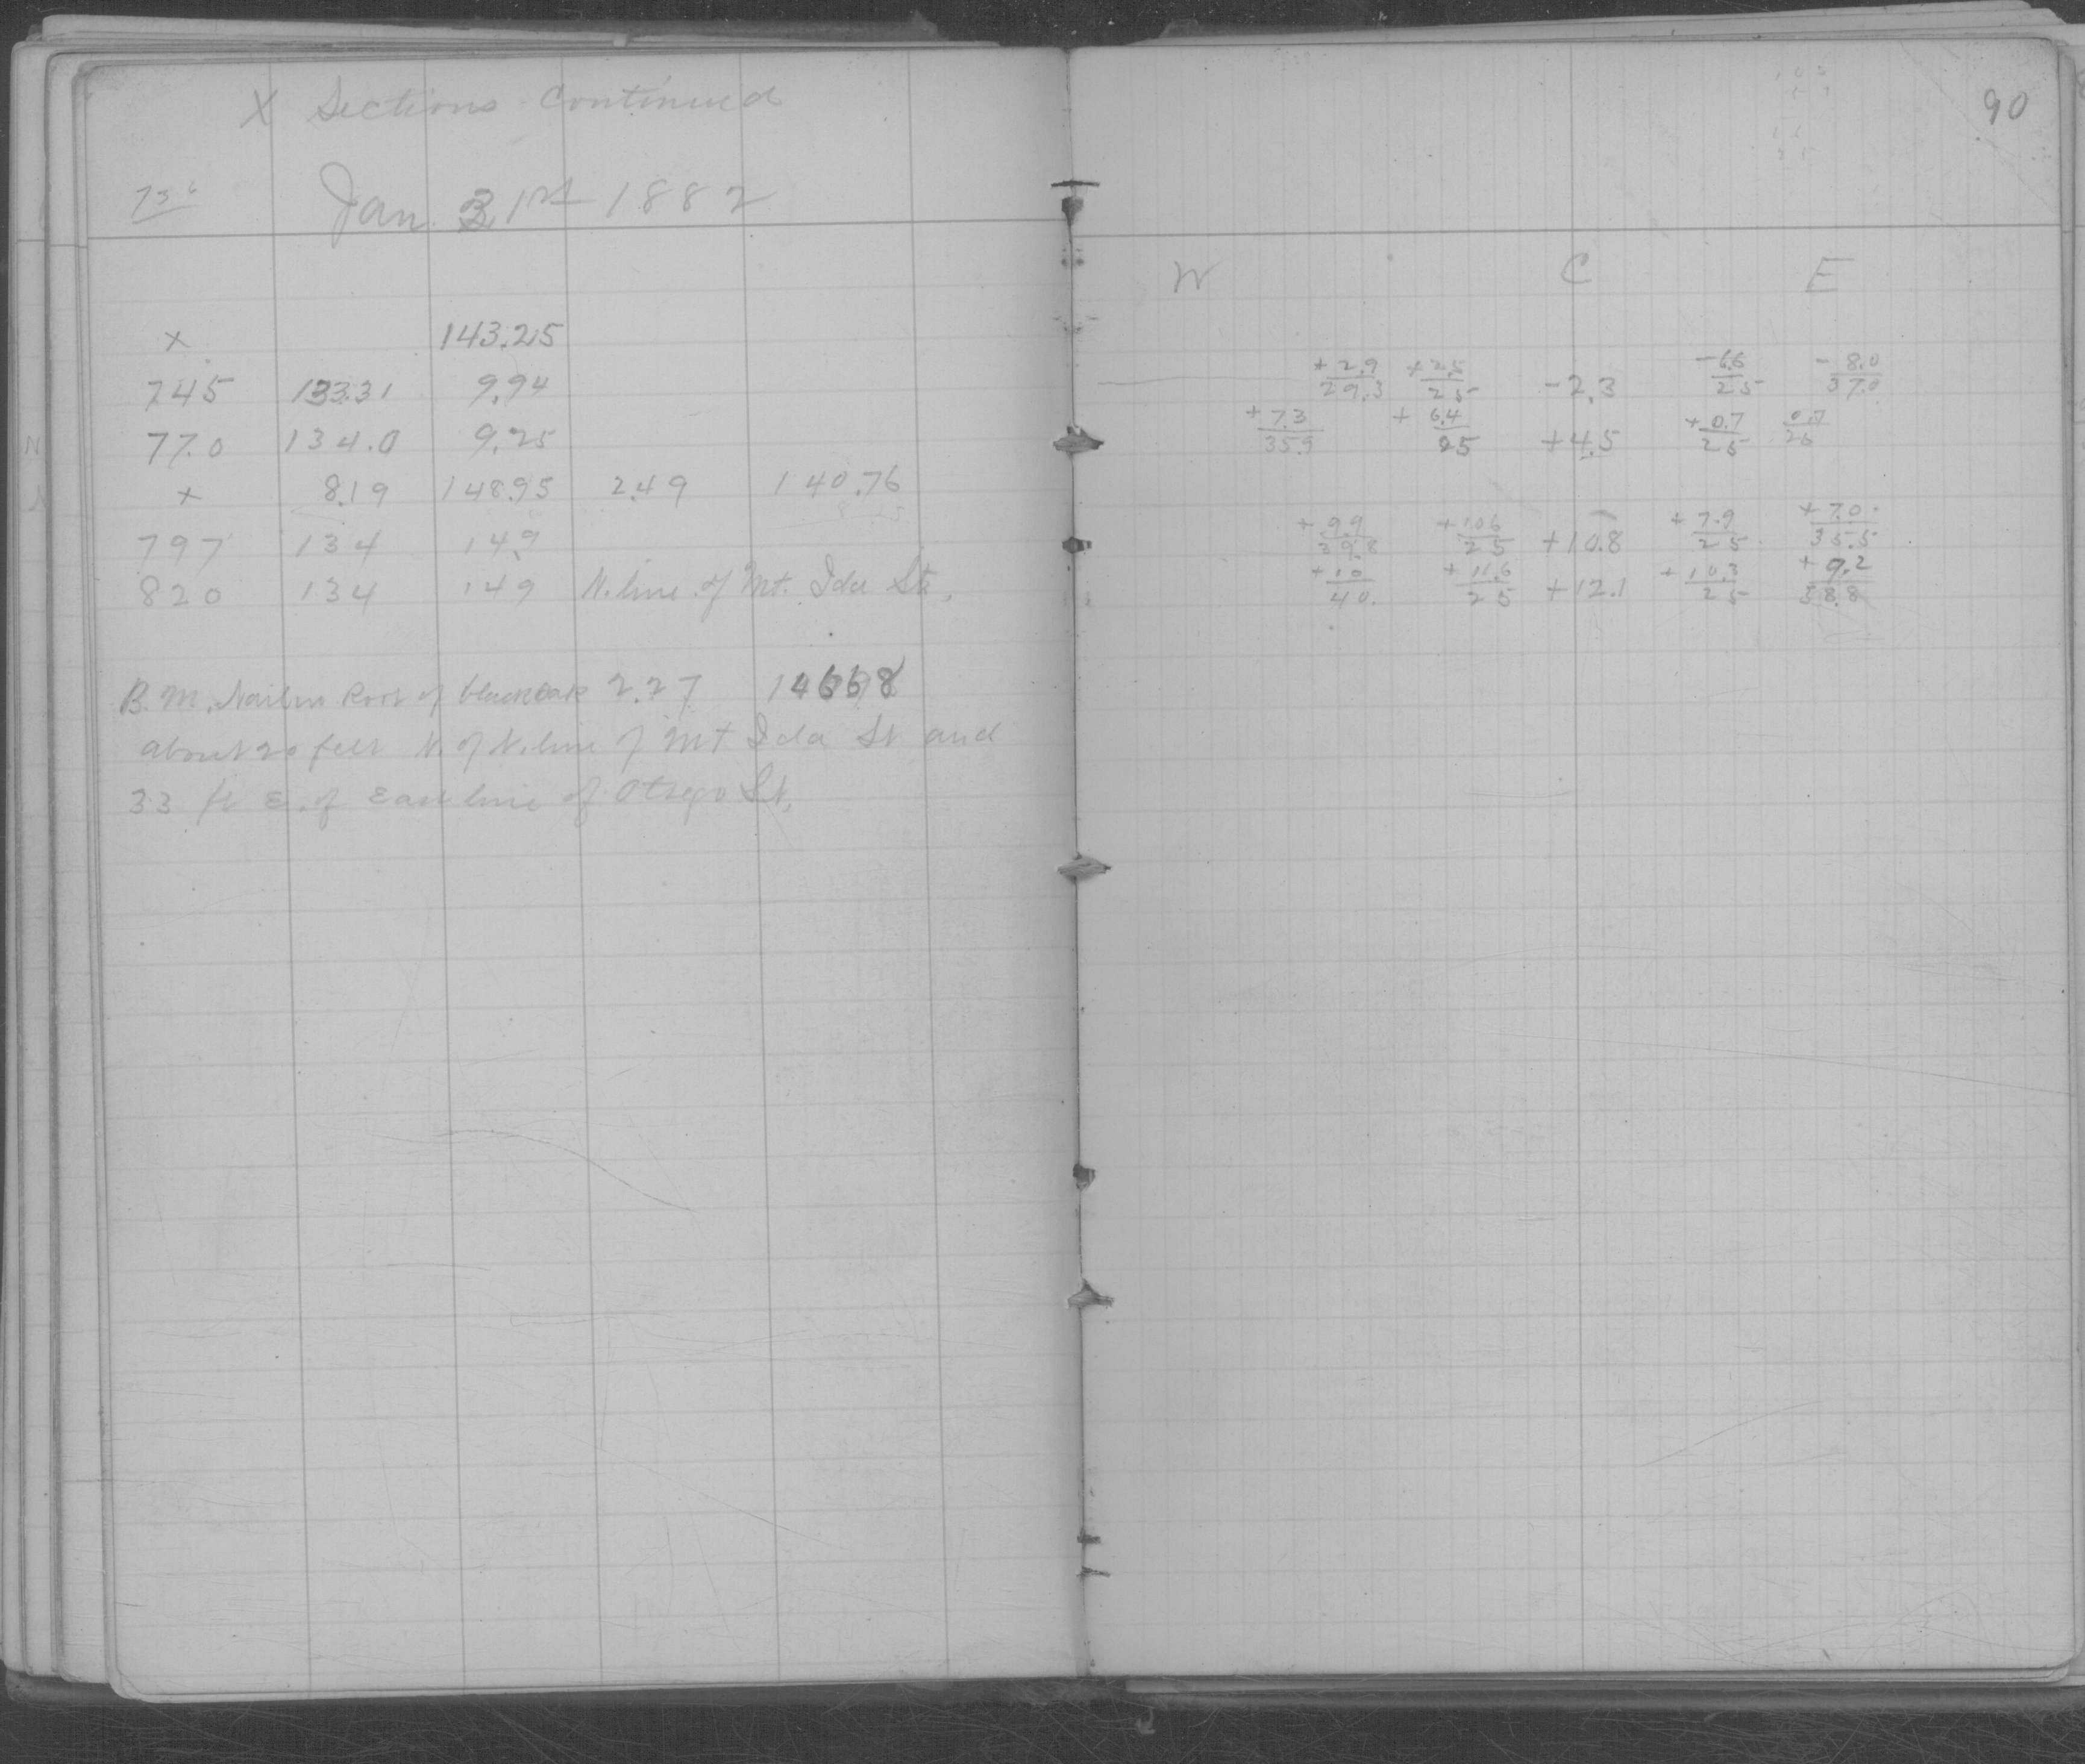 X Sections Continued
Jan. 31st 1882
x 143.25
745 133.31 9.94
770 134.0 9.25
x 8.19 148.95 2.49 140.76
797 134 149
820 134 149 N. line of Mt. Ida St.
B.M. Nail in Root of black oak 2.27 14668
about 20 feet N. of N. line of Mt Ida St and
33 ft E. of East line of Otsego St.
90
W C E
+2.9/29.3 +2.5/25 -2.3 -6.6/25 -8.0/37.0
+7.3/35.9 +6.4/25 +4.5 +0.7/25 0.7/26
+9.9/39.8 +10.6/25 +10.8 +7.9/25 +7.0/35.5
+10/40. +11.6/25 +12.1 +10.3/25 +9.2/38.8